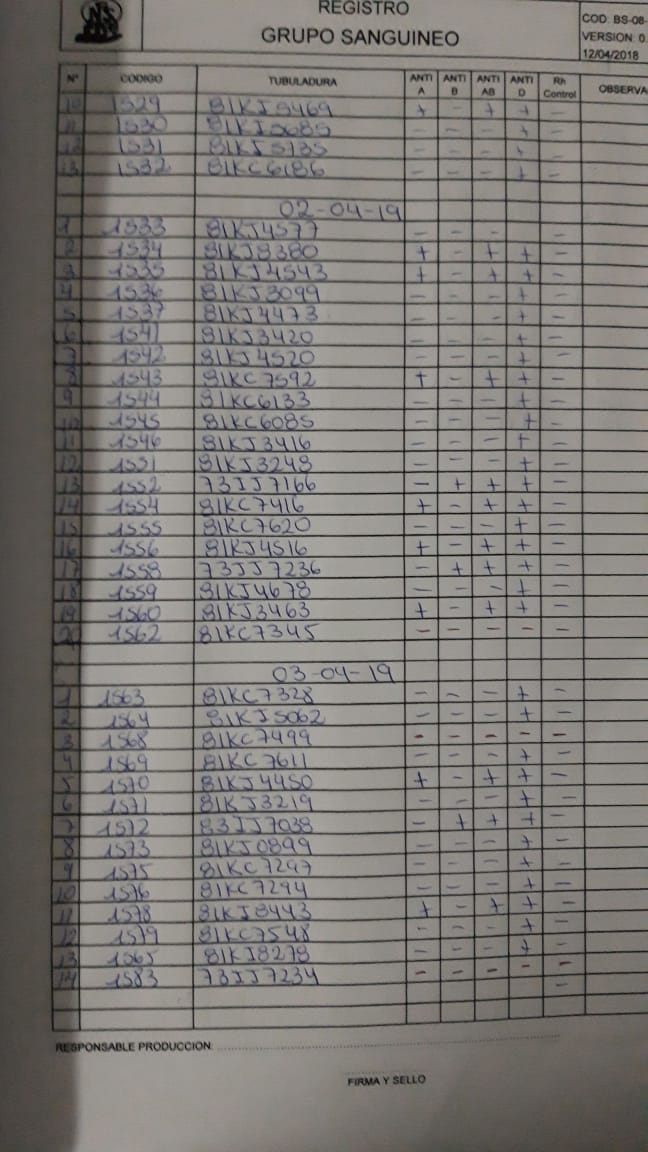 REGISTRO
GRUPO SANGUINEO
COD: BS-08-
VERSION: 0.
12/04/2018
N° CODIGO TUBULADURA ANTI A ANTI B ANTI AB ANTI D Rh Control OBSERVA
10 1529 81KJ5469 + - + + -
11 1530 81KJ0685 - - - + -
12 1531 81KJ5135 - - - + -
13 1532 81KC6186 - - - + -
02-04-19
1 1533 81KJ4577 - - - -
2 1534 81KJ8380 + - + + -
3 1535 81KJ4543 + - + + -
4 1536 81KJ3099 - - - + -
5 1537 81KJ4473 - - - + -
6 1541 81KJ3420 - - - + -
7 1542 81KJ4520 - - - + -
8 1543 81KC7592 + - + + -
9 1544 81KC6133 - - - + -
10 1545 81KC6085 - - - + -
11 1546 81KJ3416 - - - + -
12 1551 81KJ3248 - - - + -
13 1552 73JJ7166 - + + + -
14 1554 81KC7416 + - + + -
15 1555 81KC7620 - - - + -
16 1556 81KJ4516 + - + + -
17 1558 73JJ7236 - + + + -
18 1559 81KJ4678 - - - + -
19 1560 81KJ3463 + - + + -
20 1562 81KC7345 - - - - -
03-04-19
1 1563 81KC7328 - - - + -
2 1564 81KJ5062 - - - + -
3 1568 81KC7499 - - - - -
4 1569 81KC7611 - - - + -
5 1570 81KJ4450 + - + + -
6 1571 81KJ3219 - - - + -
7 1572 83JJ7038 - + + + -
8 1573 81KJ0899 - - - + -
9 1575 81KC7297 - - - + -
10 1576 81KC7294 - - - + -
11 1578 81KJ8443 + - + + -
12 1579 81KC7548 - - - + -
13 1565 81KJ8278 - - - + -
14 1583 73JJ7234 - - - - -
-
RESPONSABLE PRODUCCION:
FIRMA Y SELLO